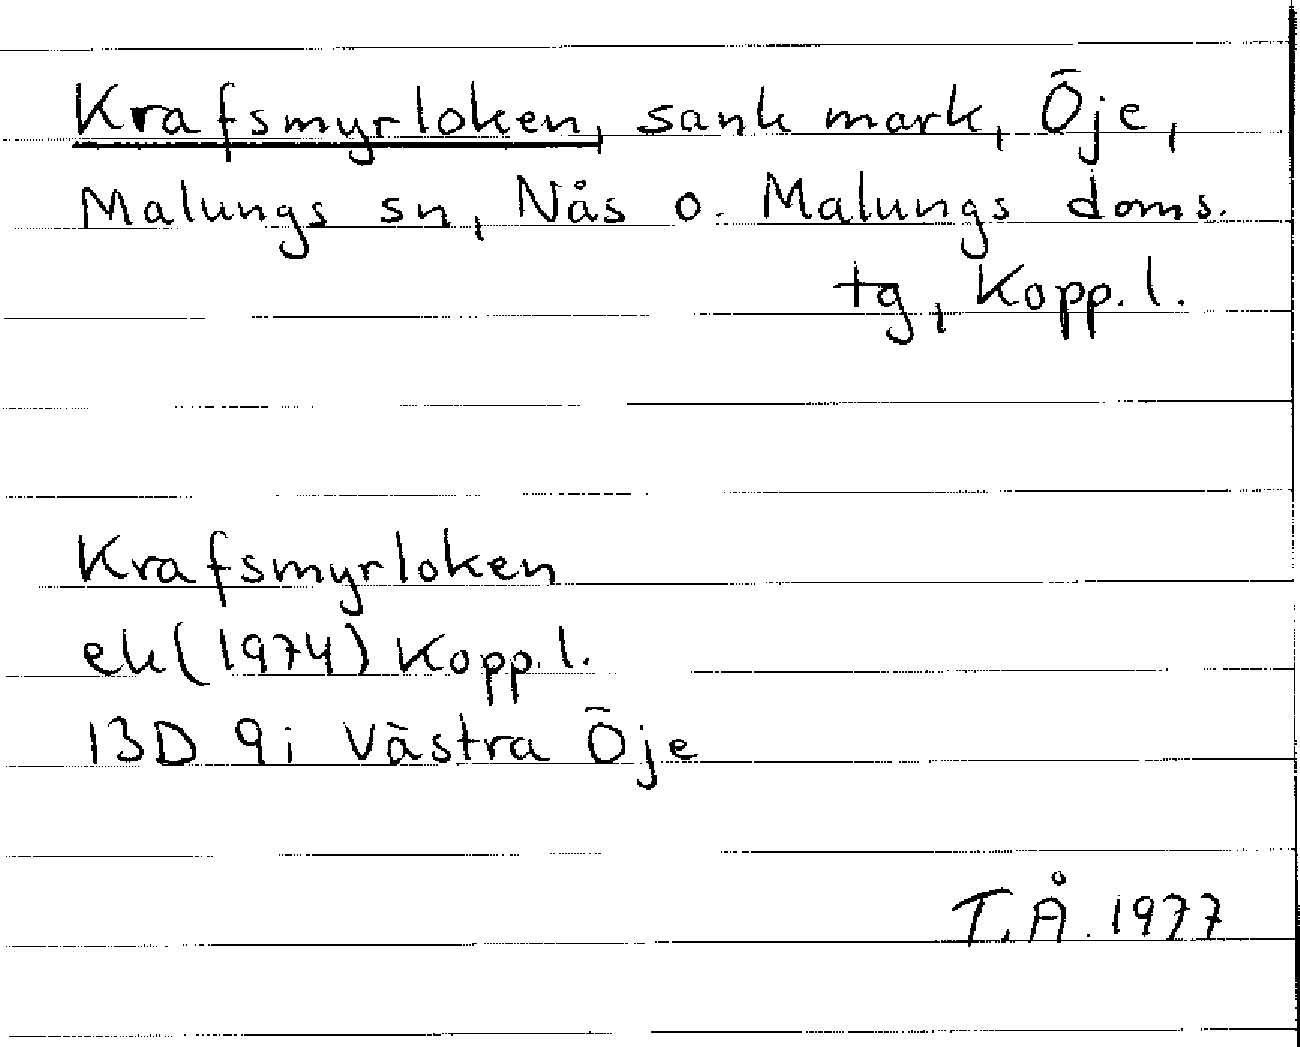 Krafsmyrloken, sank mark, Öje,
Malungs sn, Nås o. Malungs doms.
tg, Kopp. l.
Krafsmyrloken
ek (1974) Kopp. l.
13D 9i Västra Öje
T. Å. 1977